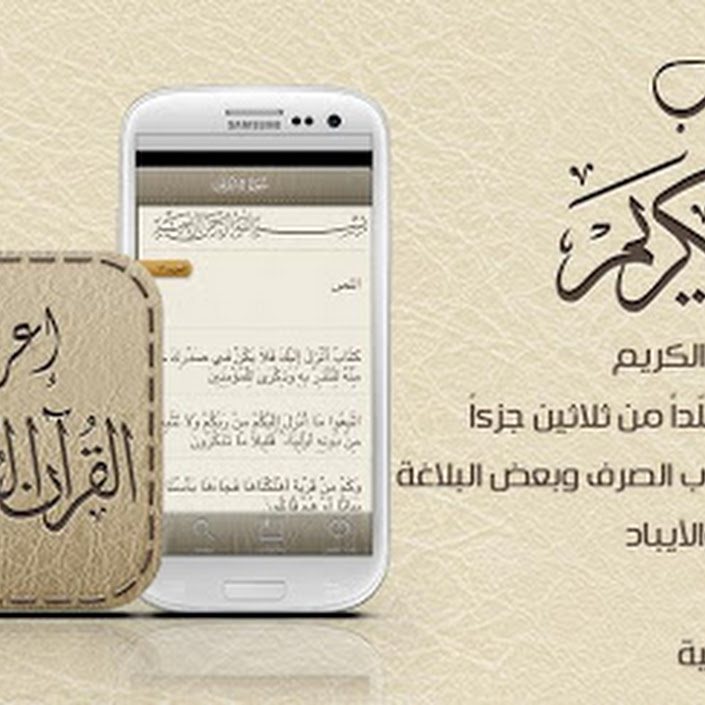 SAMSUNG
المص
كتاب أنزل إليك فلا يكن في صدرك
منه لتنذر به وذكرى للمؤمنين
اتبعوا ما أنزل إليكم من ربكم ولا
من دونه أولياء قليلا ما تذكرون
وكم من قرية أهلكناها فجاءها بأسنا
بياتا أو هم قائلون
إعر
القرآن ال
كريم
الكريم
من ثلاثين جزءاً
الصرف وبعض البلاغة
الأيباد